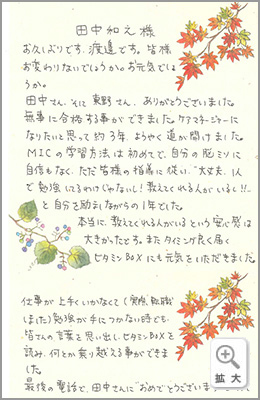 田中和之様
お久しぶりです。渡邉です。皆様
お変わりないでしょうか。お元気でしょ
うか。
田中さん、そして東野さん、ありがとうございました。
無事に合格する事ができました。ケアマネージャーに
なりたいと思って約3年、ようやく道が開けました。
MICの学習方法は初めてで、自分の脳ミソに
自信もなく、ただ皆様の指導に従い、"大丈夫、1人
で勉強してるわけじゃないし!教えてくれる人がいるし!!"
と自分を励ましながらの1年でした。
本当に、教えてくれる人がいるという安心感は
大きかったです。またタイミング良く届く
ビタミンBOXにも元気をいただきました。
仕事が上手くいかなくて(実際、転職
しました)勉強が手につかない時でも
皆さんの言葉を思い出し、ビタミンBOXを
読み、何とか乗り越える事ができま
した。
最後の電話で、田中さんに"おめでとうございま
拡大